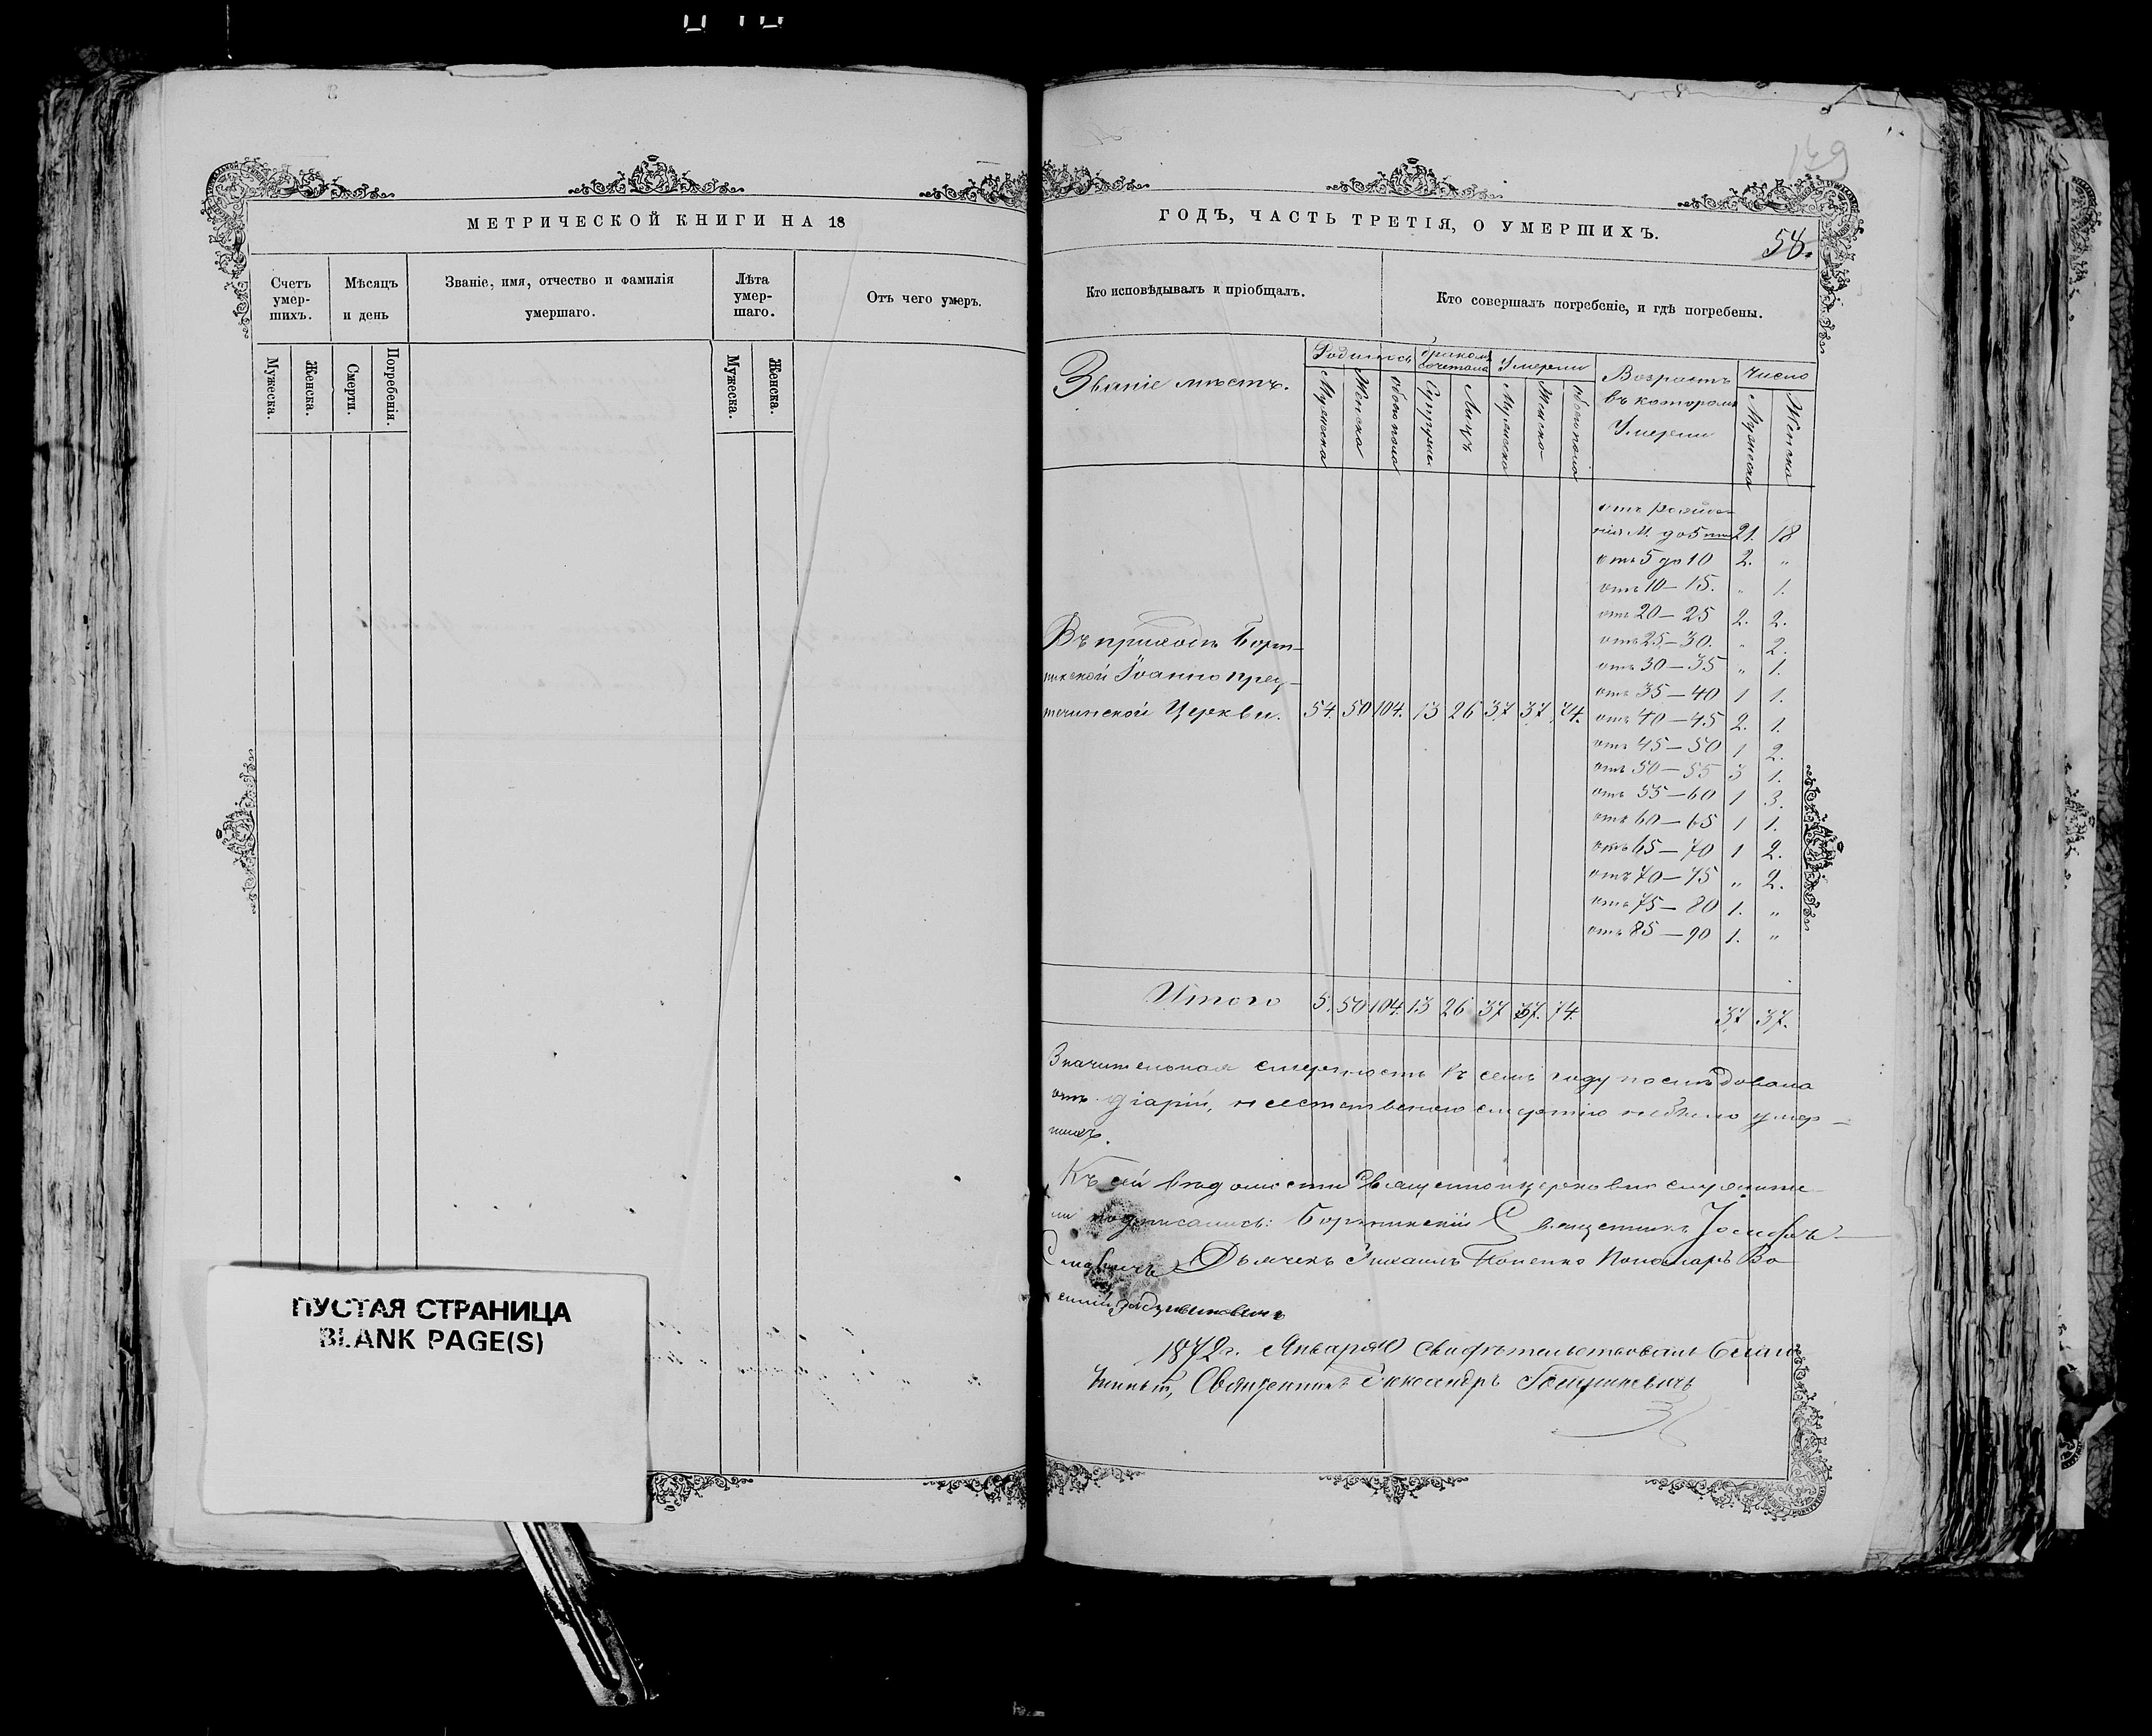 139
МЕТРИЧЕСКОЙ КНИГИ НА 18
ГОДЪ, ЧАСТЬ ТРЕТІЯ, О УМЕРШИХЪ.
58.
Счетъ умер-шихъ.
Мѣсяцъ и день
Званіе, имя, отчество и фамилія умершаго.
Лѣта умер-шаго.
Отъ чего умеръ.
Мужеска.
Женска.
Смерти.
Погребенія.
Мужеска.
Женска.
Кто исповѣдывалъ и пріобщалъ.
Кто совершалъ погребеніе, и гдѣ погребены.
Званіе мѣстъ.
Родилось
бракомъ сочетано
Умерли
Возрастъ
въ которомъ
Умерли
Число
Мужеска
Женска
обоего пола
Супруж
Лицъ
Мужеска
Женска
обоего пола
Мужеска
Женска
отъ рожде-
нія М. до 5 21. 18
отъ 5 до 10 2. „
отъ 10 — 15. „ 1.
отъ 20 — 25 2. 2.
отъ 25 — 30. „ 2.
отъ 30 — 35 „ 1.
отъ 35 — 40 1 1.
отъ 40 — 45 2. 1.
отъ 45 — 50 1 2.
отъ 50 — 55 3 1.
отъ 55 — 60 1 3.
отъ 60 — 65 1 1.
отъ 65 — 70 1 2.
отъ 70 — 75 „ 2.
отъ 75 — 80 1. „
отъ 85 — 90 1. „
Въ приходѣ
Іоанно пред-
течинской Церкви. 54. 50 104. 13 26 37 37 74.
Итого 5. 50 104. 13 26 37 37. 74. 37 37.
Значительная смертность въ семъ году послѣдовала
отъ діаріи, неестественною смертію небыло умер-
шихъ.
Къ сей вѣдомости священноцерковно служите-
ли подписались: Священникъ Іосифъ
Дьячекъ Михаилъ Пономарь
1872 г. Января 10 свидѣтельствовалъ
Священникъ Александръ
ПУСТАЯ СТРАНИЦА
BLANK PAGE(S)